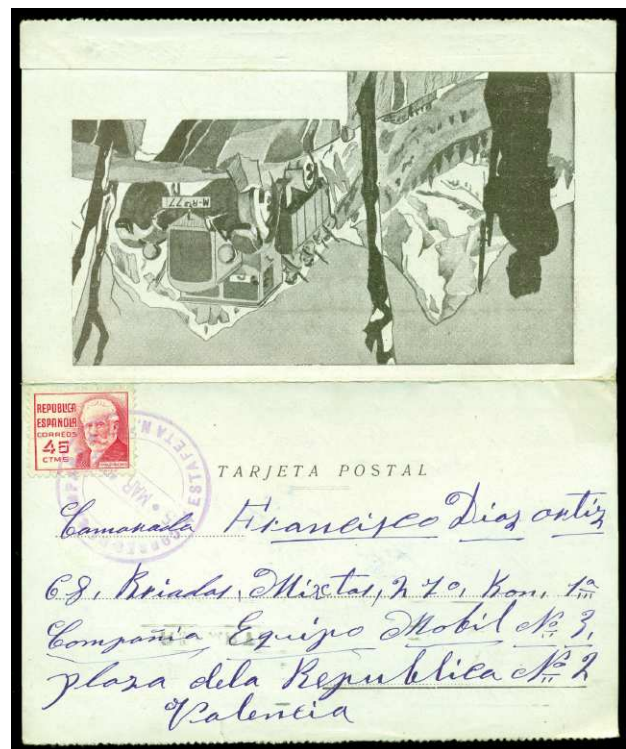 M-R
REPÚBLICA
ESPAÑOLA
CORREOS
45
CTMS
ESTAFETA N.
MAR
TARJETA POSTAL
Camarada Francisco Diaz ortiz
68, Mixtas, 270, 1ª
Compañia Equipo Mobil Nº 3,
plaza dela Republica Nº 2
Valencia